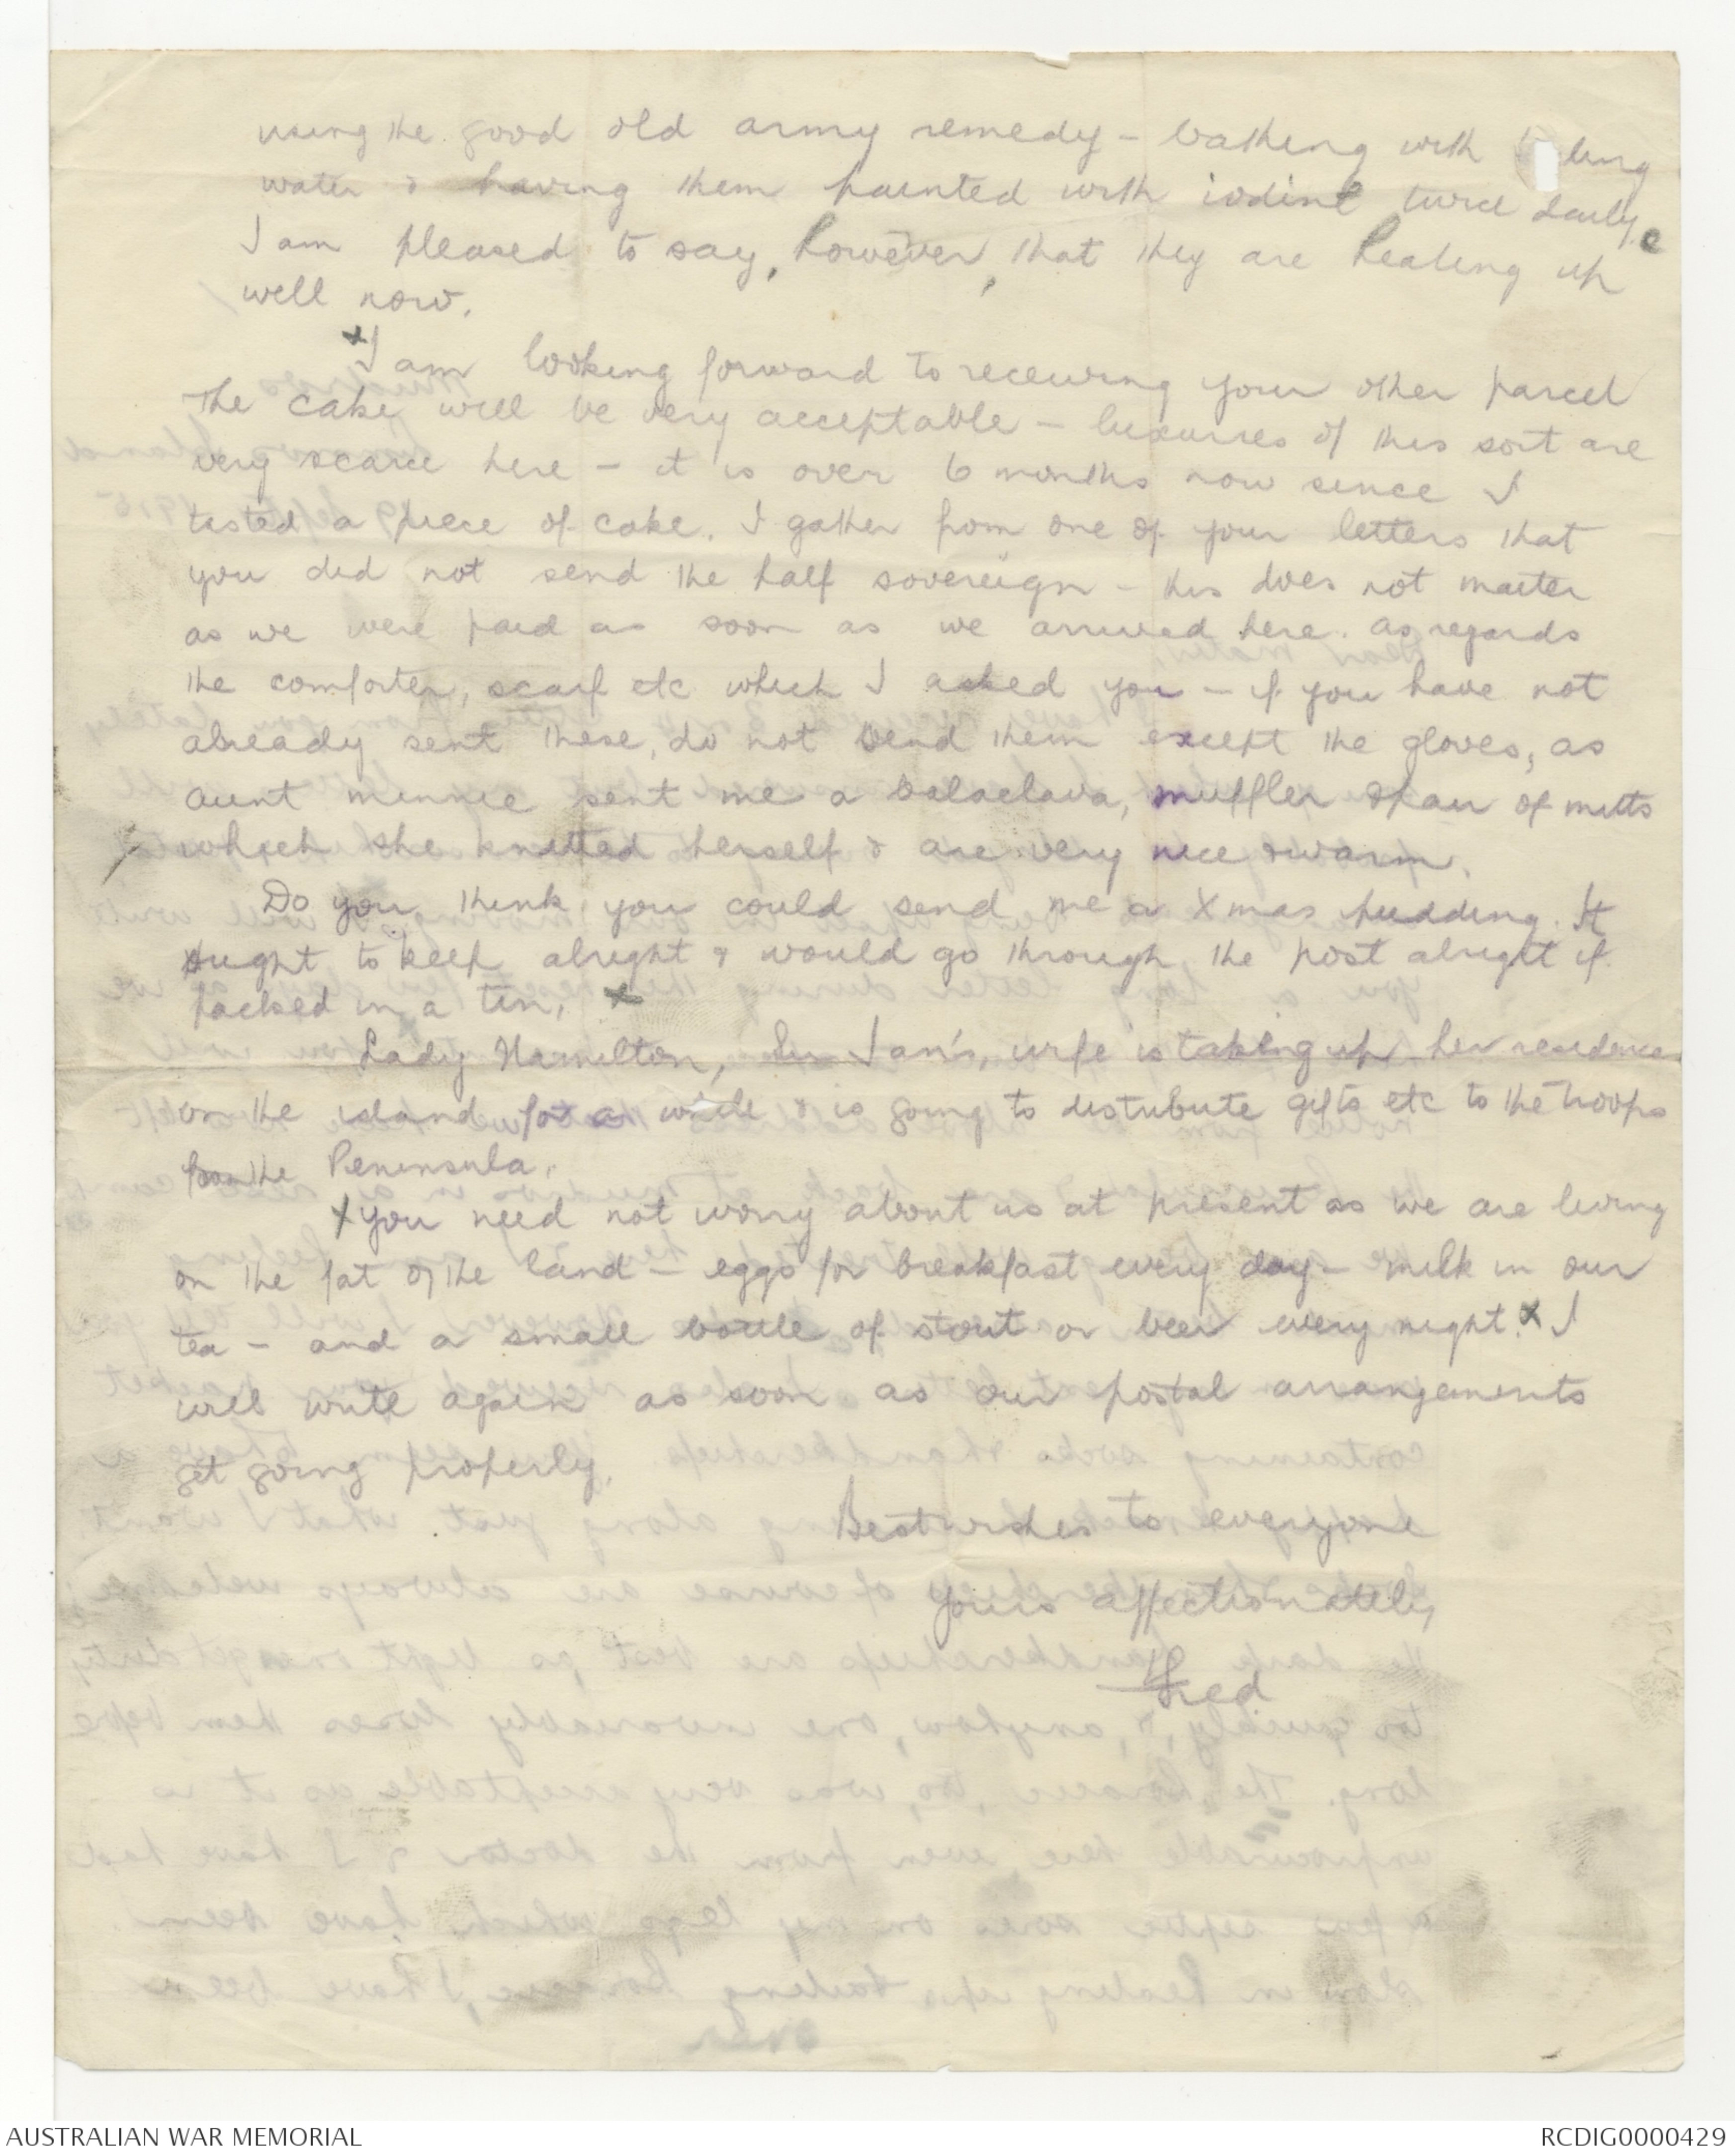 using the good old army remedy - bathing with b  ling
water & having them painted with iodine twice daily.
I am pleased to say, however, that they are healing up
well now.
x I am looking forward to receiving your other parcel
The cake will be very acceptable - luxuries of this sort are
very scarce here - it is over 6 months now since I
tasted a piece of cake. I gather from one of your letters that
you did not send the half sovereign - this does not matter
as we were paid as soon as we arrived here. As regards
the comforter, scarf etc which I asked you - if you have not
already sent these, do not send them except the gloves, as
Aunt Minnie sent me a balaclava, muffler & pair of mitts
which she knitted herself & are very nice & warm.
Do you think you could send me a Xmas pudding. It
ought to keep alright & would go through the post alright if
packed in a tin. x
Lady Hamilton, Sir Ian's, wife is taking up her residence
on the island for a while & is going to distribute gifts etc to the troops
from the Peninsula.
x You need not worry about us at present as we are living
on the fat of the land - eggs for breakfast every day - milk in our
tea - and a small bottle of stout or beer every night. x I
will write again as soon as our postal arrangements
get going properly.
Best wishes to everyone
Yours affectionately
Fred
AUSTRALIAN WAR MEMORIAL
RCDIG0000429